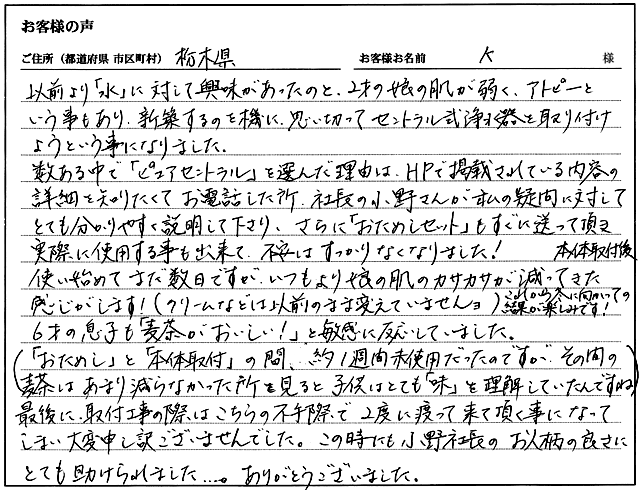 お客様の声
ご住所（都道府県 市区町村） 栃木県 お客様お名前 K 様
以前より「水」に対して興味があったのと、2才の娘の肌が弱く、アトピーと
いう事もあり、新築するのを機に、思い切ってセントラル式浄水器を取り付け
ようという事になりました。
数ある中で「ピュアセントラル」を選んだ理由は、HPで掲載されている内容の
詳細を知りたくてお電話した所、社長の小野さんが私の疑問に対して
とても分かりやすく説明して下さり、さらに「おためしセット」もすぐに送って頂き
実際に使用する事も出来て、不安はすっかりなくなりました！ 本体取付後
使い始めてまだ数日ですが、いつもより娘の肌のカサカサが減ってきた
感じがします！（クリームなどは以前のまま変えていませんョ）これから冬に向かっての
結果が楽しみです！
6才の息子も「麦茶がおいしい！」と敏感に反応していました。
（「おためし」と「本体取付」の間、約1週間未使用だったのですが、その間の
麦茶はあまり減らなかった所を見ると子供はとても「味」を理解していたんですね）
最後に、取付工事の際はこちらの不手際で2度に渡って来て頂く事になって
しまい大変申し訳ございませんでした。この時にも小野社長のお人柄の良さに
とても助けられました…。ありがとうございました。